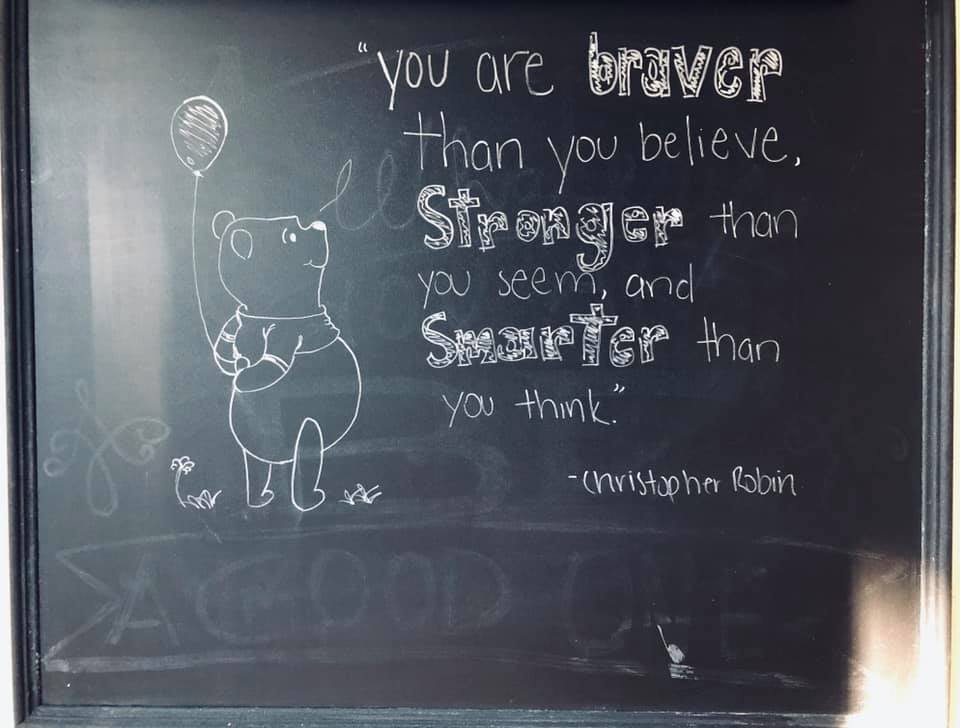 "you are braver
than you believe,
Stronger than
you seem, and
SmarTer than
you think."
-Christopher Robin
A GOOD ONE